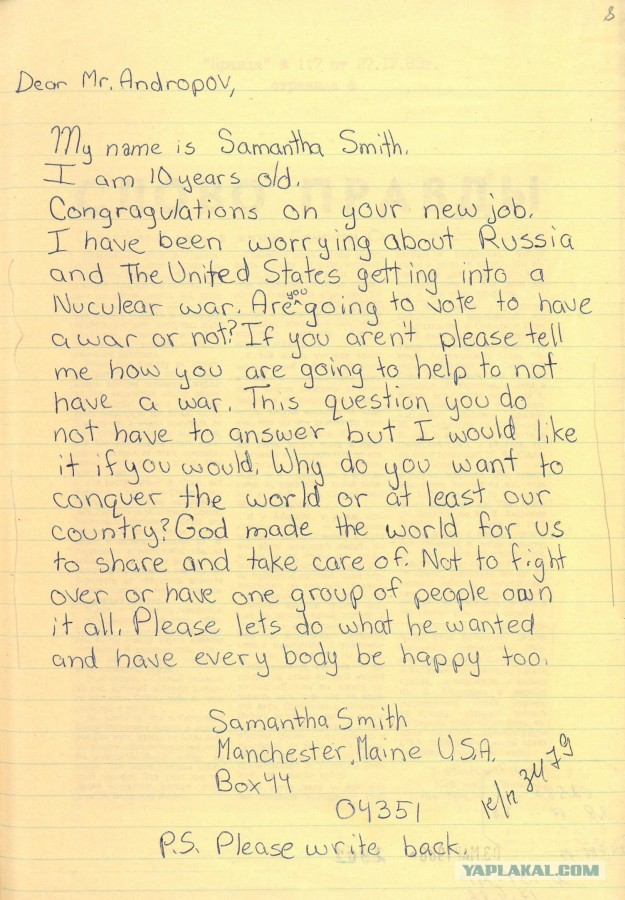 8
Dear Mr. Andropov,
My name is Samantha Smith.
I am 10 years old.
Congragulations on your new job.
I have been worrying about Russia
and The United States getting into a
Nuculear war. Are you going to vote to have
a war or not? If you aren't please tell
me how you are going to help to not
have a war. This question you do
not have to answer but I would like
it if you would. Why do you want to
conquer the world or at least our
country? God made the world for us
to share and take care of. Not to fight
over or have one group of people own
it all. Please lets do what he wanted
and have every body be happy too.
Samantha Smith
Manchester, Maine U.S.A.
Box 44
04351
3479
P.S. Please write back.
YAPLAKAL.COM